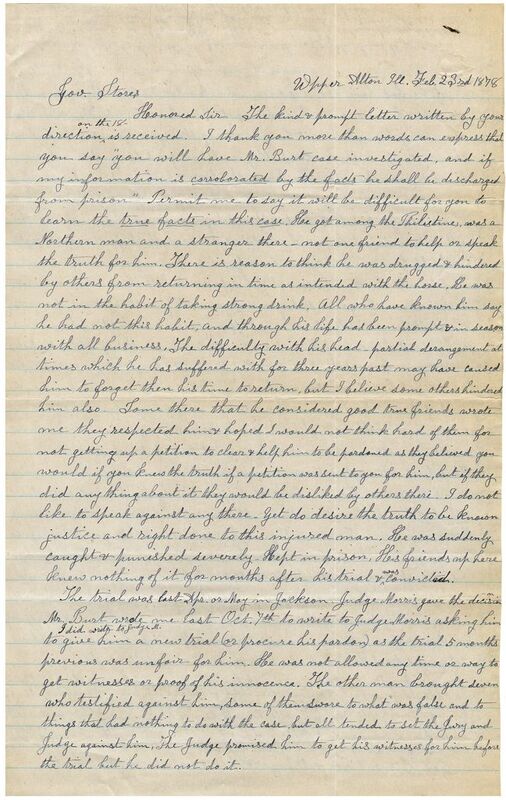 Upper Alton Ill. Feb. 23rd 1878
Gov. Stores
Honored Sir The kind & prompt letter written by your
on the 18
direction, is received. I thank you more than words can express that
you say "you will have Mr. Burt case investigated, and if
my information is corroborated by the facts he shall be discharged
from prison" Permit me to say it will be difficult for you to
learn the true facts in this case. He got among the Philistine, was a
Northern man and a stranger there - not one friend to help or speak
the truth for him. There is reason to think he was drugged & hindered
by others from returning in time as intended with the horse. He was
not in the habit of taking strong drink. All who have known him say
he had not this habit, and through his life has been prompt & in season
with all business. The difficulty with his head partial derangement at
times which he has suffered with for three years past may have caused
him to forget then his time to return, but I believe some others hindered
him also. Some there that he considered good true friends wrote
me they respected him & hoped I would not think hard of them for
not getting up a petition to clear & help him to be pardoned as they believed you
would if you knew the truth if a petition was sent to you for him, but if they
did any thing about it they would be disliked by others there. I do not
like to speak against any there. Yet do desire the truth to be known
justice and right done to this injured man. He was suddenly
caught & punished severely. Kept in prison. His friends up here
knew nothing of it for months after his trial & was convicted.
The trial was last Apr. or May in Jackson. Judge Morris gave the decision
Mr. Burt wrote me last Oct. 7th to write to Judge Morris asking him
I did write to Judge
to give him a new trial (or procure his pardon) as the trial 5 months
previous was unfair for him. He was not allowed any time or way to
get witnesses or proof of his innocence. The other man brought seven
who testified against him, some of them swore to what was false and to
things that had nothing to do with the case, but all tended to set the Jury and
Judge against him. The Judge promised him to get his witnesses for him before
the trial but he did not do it.